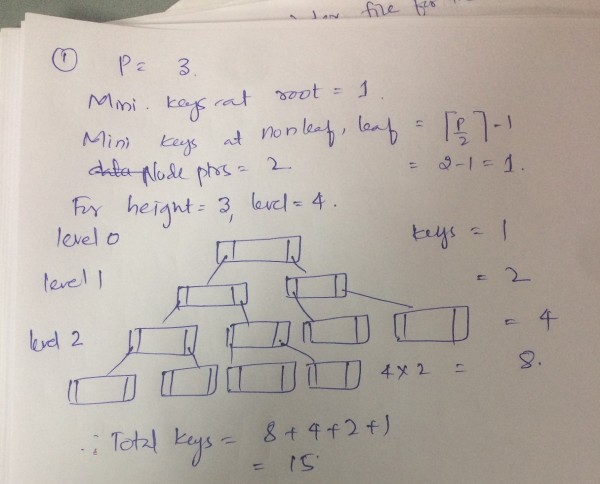 file for
① P = 3.
Mini. keys at root = 1.
Mini keys at nonleaf, leaf = ⌈P/2⌉ - 1
Node ptrs = 2. = 2-1 = 1.
For height = 3, level = 4.
level 0 keys = 1
level 1 = 2
level 2 = 4
4 x 2 = 8.
∴ Total keys = 8 + 4 + 2 + 1
= 15